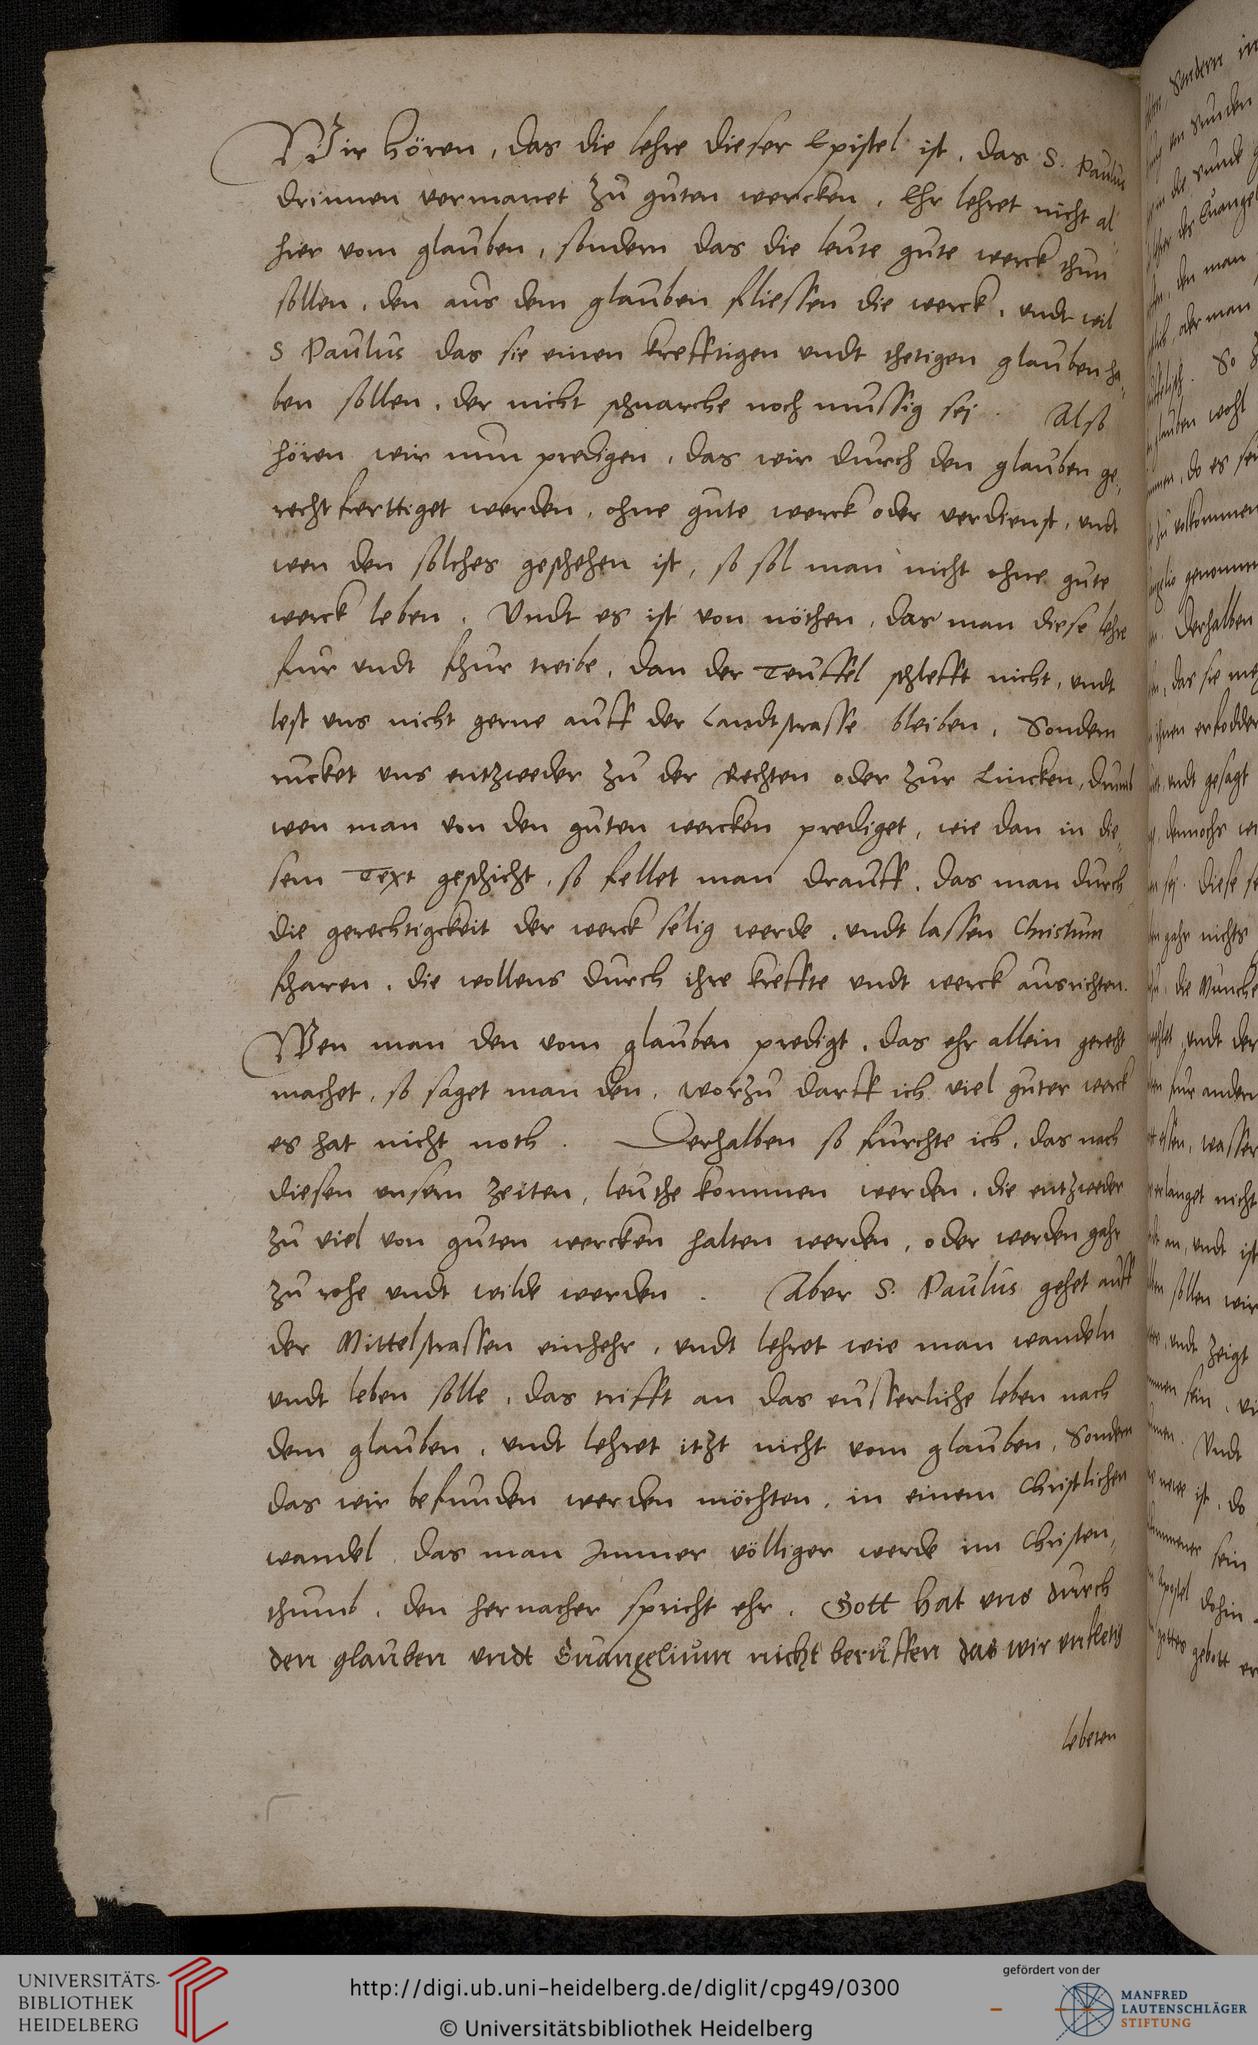 Wir hören, das die lehre dieser Epistel ist, das S. Paulus
drinnen vermanet zu guten wercken, Ehr lehret nicht al
hier vom glauben, sondern das die leute gute werck thun
sollen, den aus dem glauben fliessen die werck, undt wil
S Paulus das sie einen krefftigen undt thetigen glauben ha,
ben sollen, der nicht schnarche noch mussig sej. Also
hören wir nun predigen, das wir durch den glauben ge,
rechtferttiget werden, ohne gute werck oder verdienst, undt
wen den solches geschehen ist, so sol man nicht ohne gute
werck leben. Undt es ist von nöthen, das man diese lehre
fur undt fhur treibe, dan der Teuffel schlefft nicht, undt
lest uns nicht gerne auff der Landtstrasse bleiben, Sondern
rucket uns entzweder zu der Rechten oder zur Lincken, drumb
wen man von den guten wercken prediget, wie dan in die,
sem Text geschicht, so fellet man drauff, das man durch
die gerechtigckeit der werck selig werde, undt lassen Christum
fharen, die wollens durch ihre kreffte undt werck ausrichten.
Wen man den vom glauben predigt, das ehr allein gerecht
machet, so saget man den, worzu darff ich viel guter werck
es hat nicht noth. Derhalben so furchte ich, das nach
diesen unsern zeiten, leuthe kommen werden, die entzweder
zu viel von guten wercken halten werden, oder werden gahr
zu rohe undt wilde werden. Aber S. Paulus gehet auff
der Mittelstrassen einhehr, undt lehret wie man wandeln
undt leben solle, das trifft an das eusserliche leben nach
dem glauben, undt lehret itzt nicht vom glauben, Sondern
das wir befunden werden möchten, in einem Christlichen
wandel, das man Immer völliger werde im Christen,
thumb, den hernacher spricht ehr, Gott hat uns durch
den glauben undt Euangelium nicht beruffen das wir unfletig
lebeten
UNIVERSITÄTS-
BIBLIOTHEK
HEIDELBERG
http://digi.ub.uni-heidelberg.de/diglit/cpg49/0300
© Universitätsbibliothek Heidelberg
gefördert von der
MANFRED
LAUTENSCHLÄGER
STIFTUNG